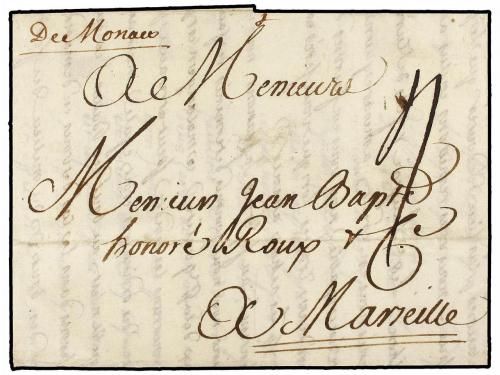 De Monaco
A Messieurs
Messieurs Jean Bapte
honoré Roux & Cie
A Marseille